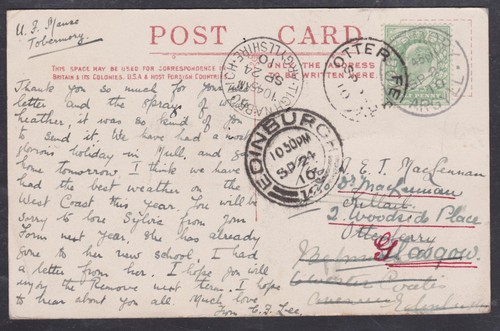 U. F. Manse
Tobermory.
POST CARD
THIS SPACE MAY BE USED FOR CORRESPONDENCE
BRITAIN & ITS COLONIES, U.S.A & MOST FOREIGN COUNTRIES
THE ADDRESS
BE WRITTEN HERE.
Thank you so much for your
letter and the spray of white
heather, it was so kind of you
to send it. We have had a most
glorious holiday in Mull, and go
home tomorrow. I think we have
had the best weather on the
West Coast this year. You will be
sorry to lose Sylvia from your
Form next year. She has already
gone to her new school, I had
a letter from her. I hope you will
enjoy the Remove next term. I hope
to hear about you all. Much love
from C. F. Lee.
ARDRISHAIG
ARGYLLSHIRE
10 45 AM
SP 24
10
OTTER FE
10
ARGYLL
EDINBURGH
10 30 PM
SP 24
10
E. T. MacLennan
MacLennan
2 Woodside Place
Otterferry
Glasgow.